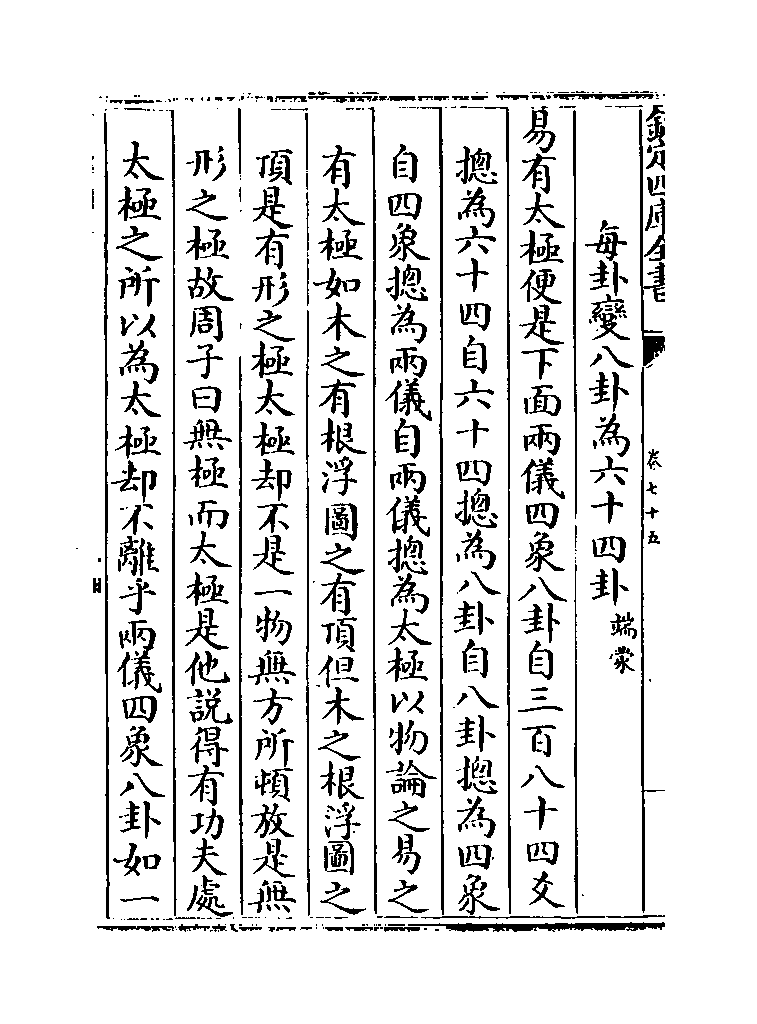 欽定四庫全書
卷七十五
每卦變八卦為六十四卦端蒙
易有太極便是下面兩儀四象八卦自三百八十四爻
摠為六十四自六十四摠為八卦自八卦摠為四象
自四象摠為兩儀自兩儀摠為太極以物論之易之
有太極如木之有根浮圖之有頂但木之根浮圖之
頂是有形之極太極却不是一物無方所頓放是無
形之極故周子曰無極而太極是他説得有功夫處
太極之所以為太極却不離乎兩儀四象八卦如一